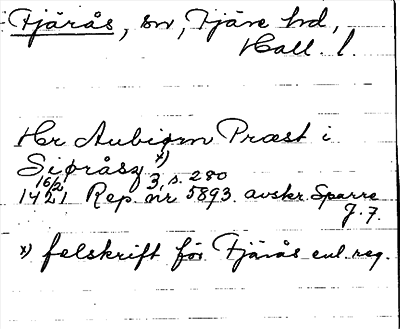 Fjärås, sn, Fjäre hd,
Hall. l.
Hr Aubiørn Præst i
Siøråsz x)
16/2 1421 Rep. nr 5893. avskr. Sparre
3, s. 280
J. 7.
x) felskrift för Fjärås enl. reg.